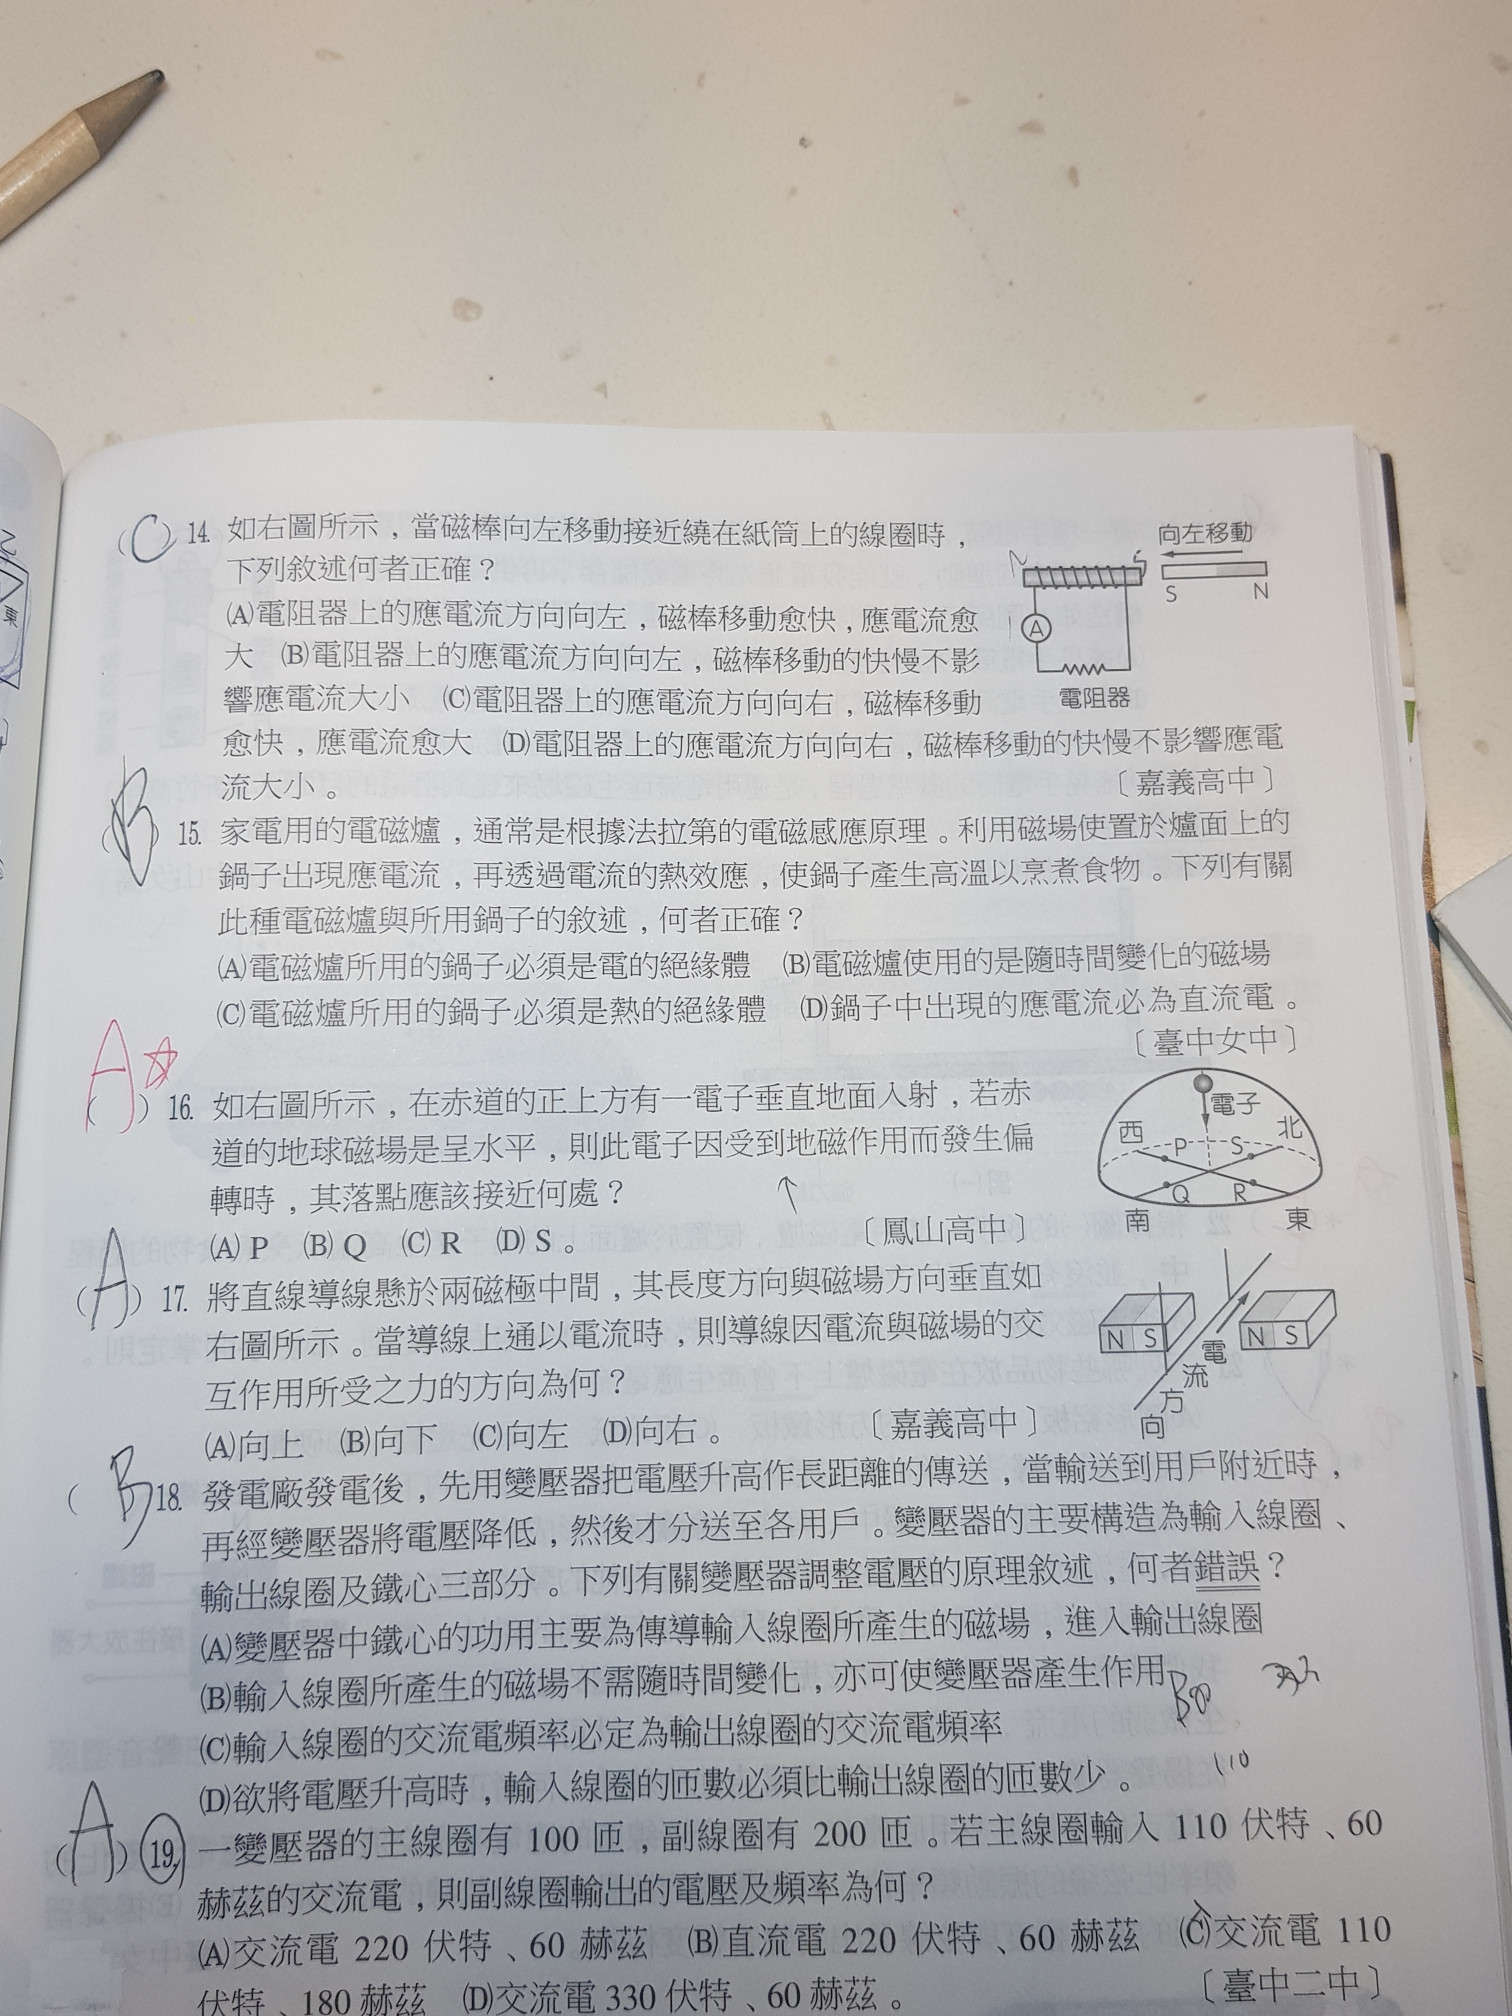 (C) 14. 如右圖所示，當磁棒向左移動接近繞在紙筒上的線圈時，
下列敘述何者正確？
(A)電阻器上的應電流方向向左，磁棒移動愈快，應電流愈
大　(B)電阻器上的應電流方向向左，磁棒移動的快慢不影
響應電流大小　(C)電阻器上的應電流方向向右，磁棒移動
愈快，應電流愈大　(D)電阻器上的應電流方向向右，磁棒移動的快慢不影響應電
流大小。　〔嘉義高中〕
向左移動
S N
A
電阻器
(B) 15. 家電用的電磁爐，通常是根據法拉第的電磁感應原理。利用磁場使置於爐面上的
鍋子出現應電流，再透過電流的熱效應，使鍋子產生高溫以烹煮食物。下列有關
此種電磁爐與所用鍋子的敘述，何者正確？
(A)電磁爐所用的鍋子必須是電的絕緣體　(B)電磁爐使用的是隨時間變化的磁場
(C)電磁爐所用的鍋子必須是熱的絕緣體　(D)鍋子中出現的應電流必為直流電。
〔臺中女中〕
(A) 16. 如右圖所示，在赤道的正上方有一電子垂直地面入射，若赤
道的地球磁場是呈水平，則此電子因受到地磁作用而發生偏
轉時，其落點應該接近何處？
〔鳳山高中〕
(A) P　(B) Q　(C) R　(D) S。
電子
西 P S 北
Q R
南 東
(A) 17. 將直線導線懸於兩磁極中間，其長度方向與磁場方向垂直如
右圖所示。當導線上通以電流時，則導線因電流與磁場的交
互作用所受之力的方向為何？
(A)向上　(B)向下　(C)向左　(D)向右。　〔嘉義高中〕
N S
N S
電流方向
(B) 18. 發電廠發電後，先用變壓器把電壓升高作長距離的傳送，當輸送到用戶附近時，
再經變壓器將電壓降低，然後才分送至各用戶。變壓器的主要構造為輸入線圈、
輸出線圈及鐵心三部分。下列有關變壓器調整電壓的原理敘述，何者錯誤？
(A)變壓器中鐵心的功用主要為傳導輸入線圈所產生的磁場，進入輸出線圈
(B)輸入線圈所產生的磁場不需隨時間變化，亦可使變壓器產生作用
(C)輸入線圈的交流電頻率必定為輸出線圈的交流電頻率
(D)欲將電壓升高時，輸入線圈的匝數必須比輸出線圈的匝數少。
110
(A) 19. 一變壓器的主線圈有 100 匝，副線圈有 200 匝。若主線圈輸入 110 伏特、60
赫茲的交流電，則副線圈輸出的電壓及頻率為何？
(A)交流電 220 伏特、60 赫茲　(B)直流電 220 伏特、60 赫茲　(C)交流電 110
伏特、180 赫茲　(D)交流電 330 伏特、60 赫茲。　〔臺中二中〕